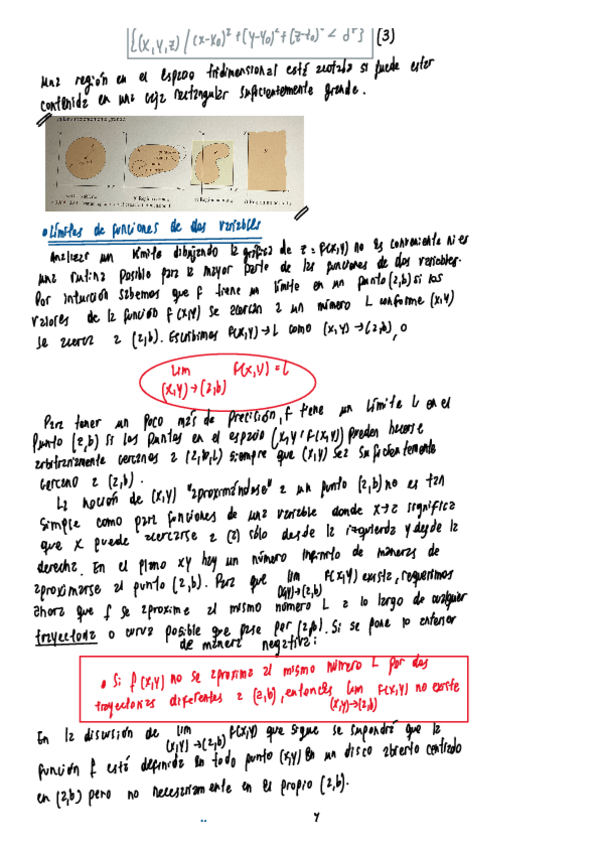 {(x,y,z) / (x-x₀)²+(y-y₀)²+(z-z₀)² < d²} (3)
Una región en el espacio tridimensional está acotada si puede estar
contenida en una caja rectangular suficientemente grande.
• Límites de funciones de dos variables
Analizar un límite dibujando la gráfica de z = f(x,y) no es conveniente ni es
una rutina posible para la mayor parte de las funciones de dos variables.
Por intuición sabemos que f tiene un límite en un punto (a,b) si los
valores de la función f(x,y) se acercan a un número L conforme (x,y)
se acerca a (a,b). Escribimos f(x,y)→L como (x,y)→(a,b), o
lim f(x,y) = L
(x,y)→(a,b)
Para tener un poco más de precisión, f tiene un límite L en el
punto (a,b) si los puntos en el espacio (x,y,f(x,y)) pueden hacerse
arbitrariamente cercanos a (a,b,L) siempre que (x,y) sea suficientemente
cercano a (a,b).
La noción de (x,y) "aproximándose" a un punto (a,b) no es tan
simple como para funciones de una variable donde x→a significa
que x puede acercarse a (a) sólo desde la izquierda y desde la
derecha. En el plano xy hay un número infinito de maneras de
aproximarse al punto (a,b). Para que lim f(x,y) exista, requerimos
(x,y)→(a,b)
ahora que f se aproxime al mismo número L a lo largo de cualquier
trayectoria o curva posible que pase por (a,b). Si se pone lo anterior
de manera negativa:
• Si f(x,y) no se aproxima al mismo número L por dos
trayectorias diferentes a (a,b), entonces lim f(x,y) no existe
(x,y)→(a,b)
En la discusión de lim f(x,y) que sigue se supondrá que la
(x,y)→(a,b)
función f está definida en todo punto (x,y) en un disco abierto centrado
en (a,b) pero no necesariamente en el propio (a,b).